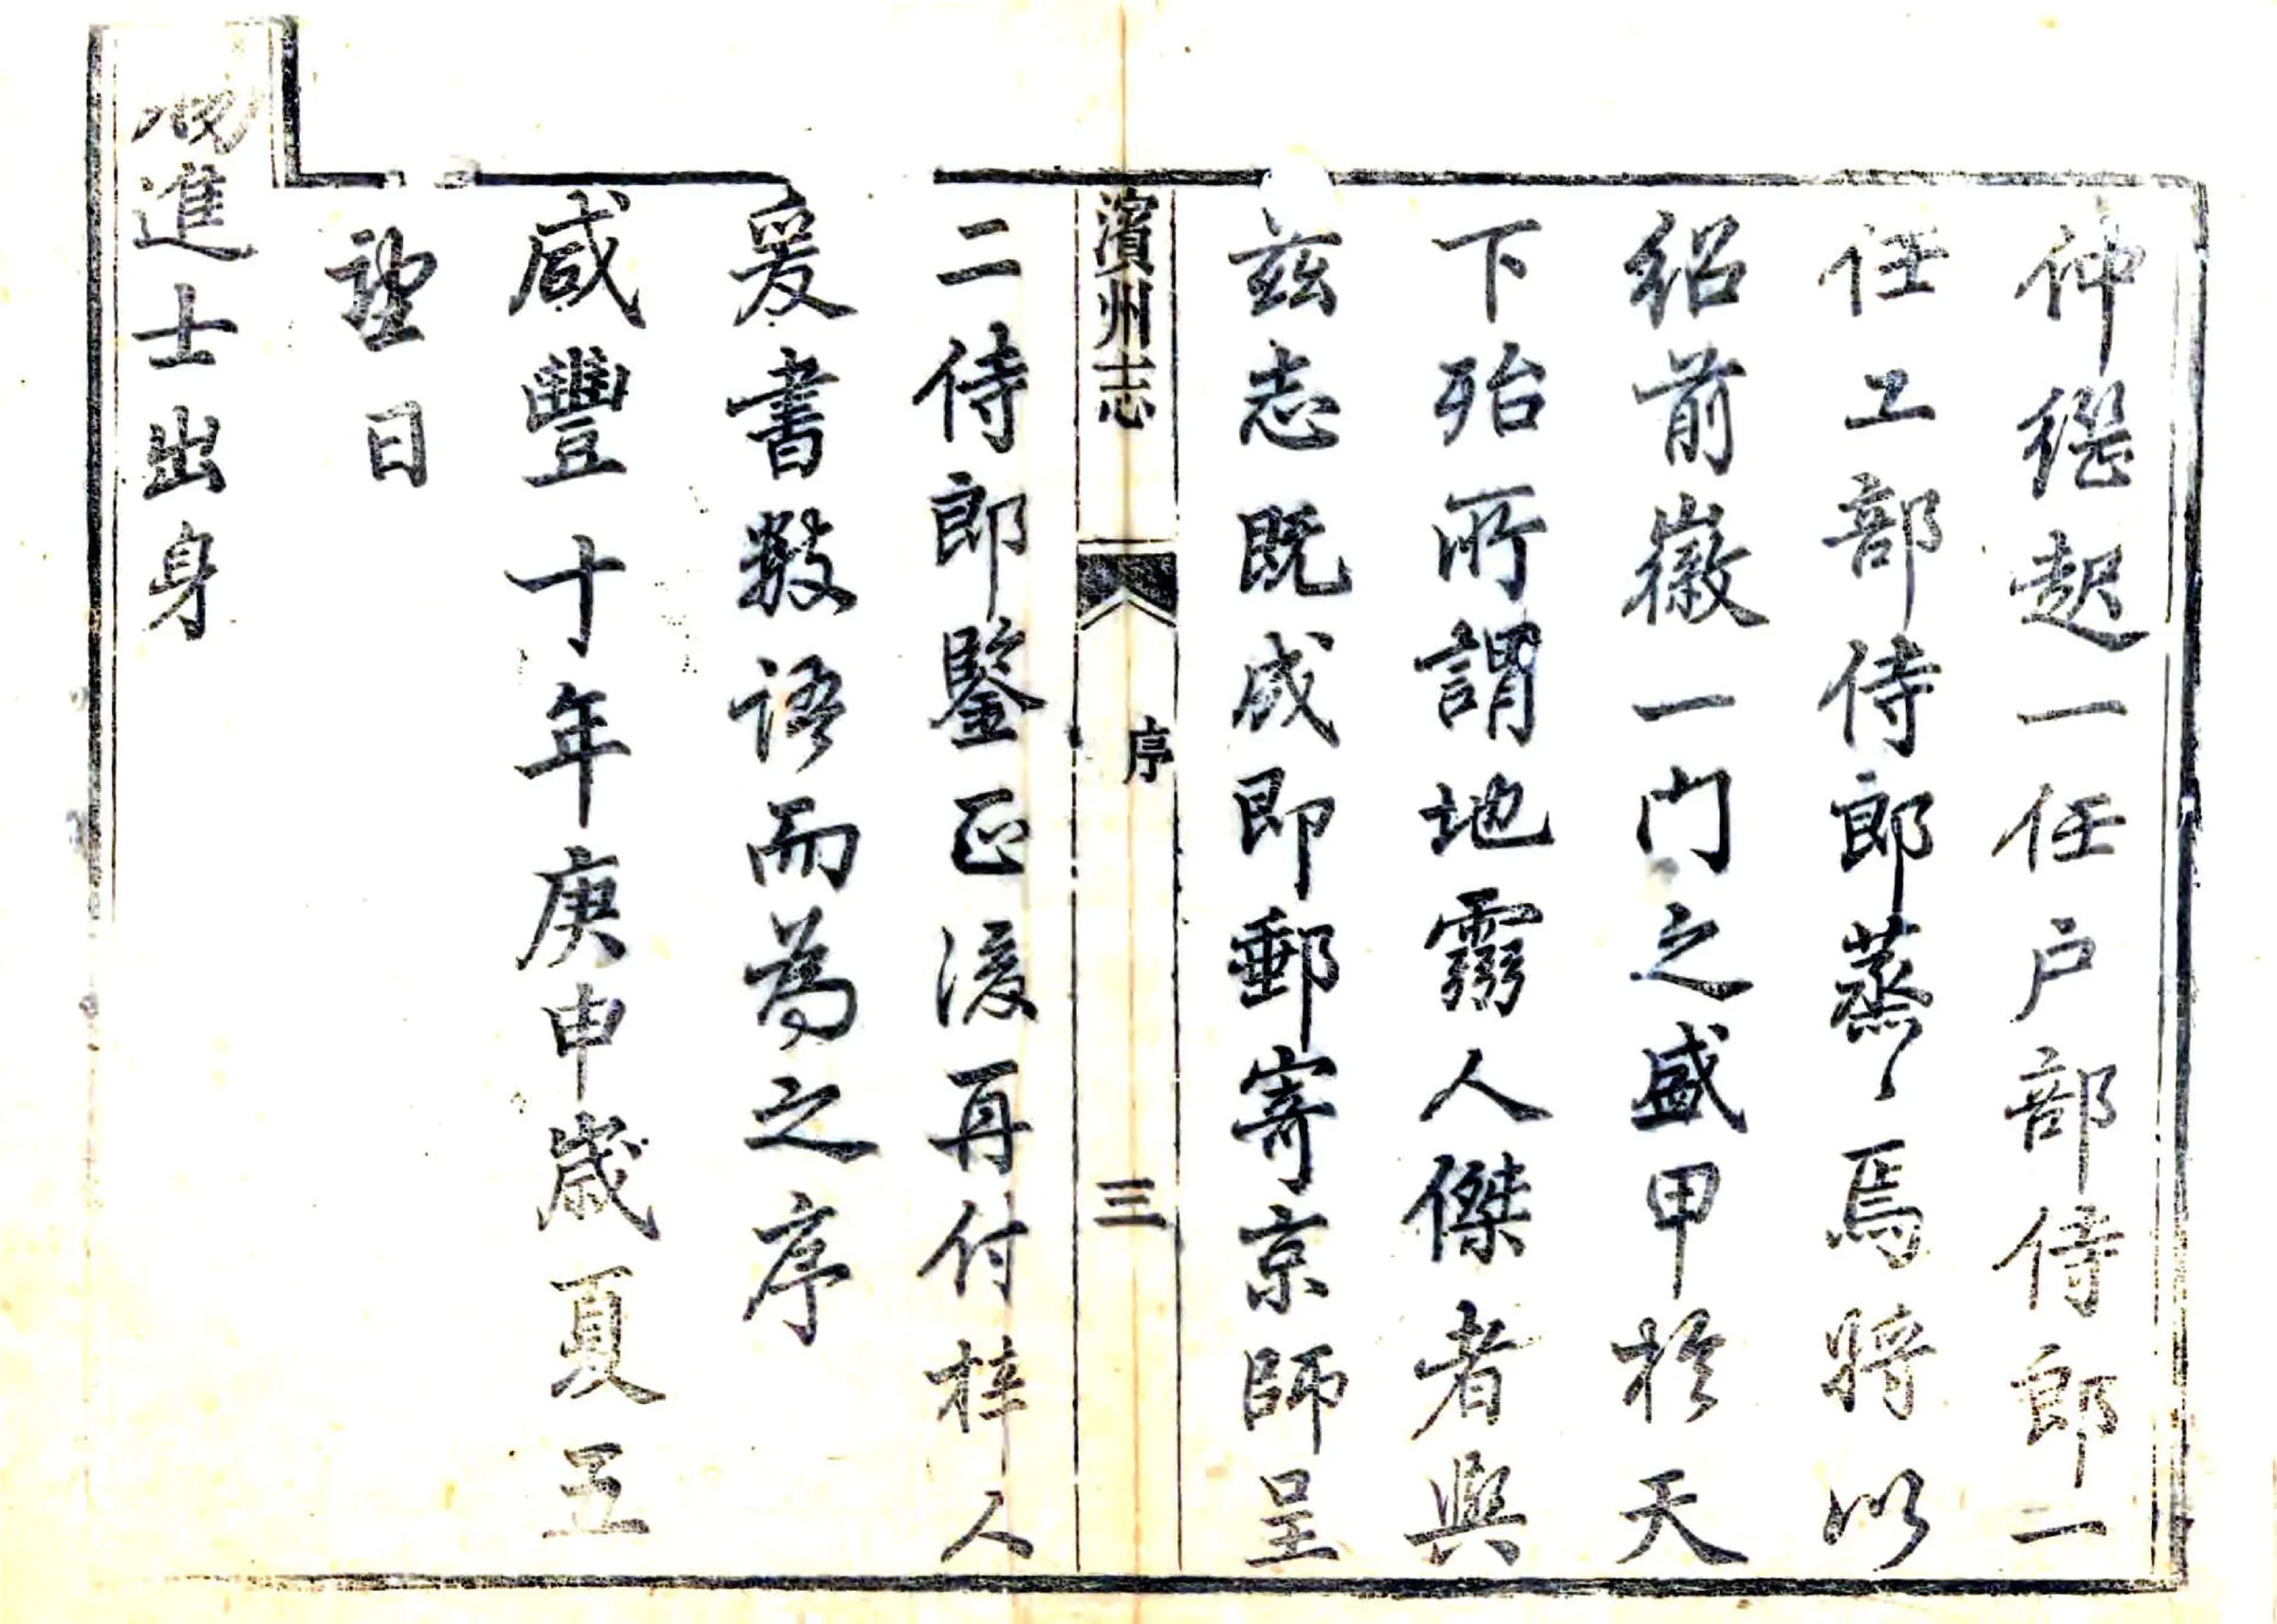 仲繼起一任户部侍郎一
任工部侍郎蒸〻焉將以
紹前徽一門之盛甲於天
下殆所謂地靈人傑者與
茲志既成即郵寄京師呈
濱州志
序
三
二侍郎鑒正後再付梓人
爰書數語而為之序
咸豐十年庚申歲夏五
望日
賜進士出身